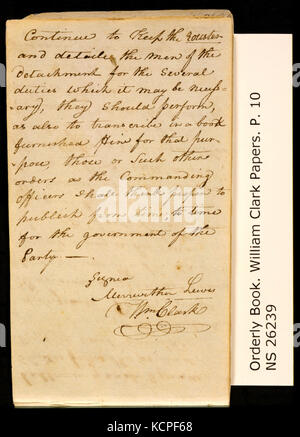 Continue to Keep the rouster
and detaile the men of the
detachment for the Several
duties which it may be necess-
ary, they Should perform,
as also to transcribe in a book
furnished him for that pur-
pose, those or Such other
orders as the Commanding
officers Shall think proper to
publish from time, to time
for the government of the
Party.—
Signed
Meriwether Lewis
Wm Clark
Orderly Book. William Clark Papers. P. 10
NS 26239
alamy
Image ID: KCPF68
www.alamy.com